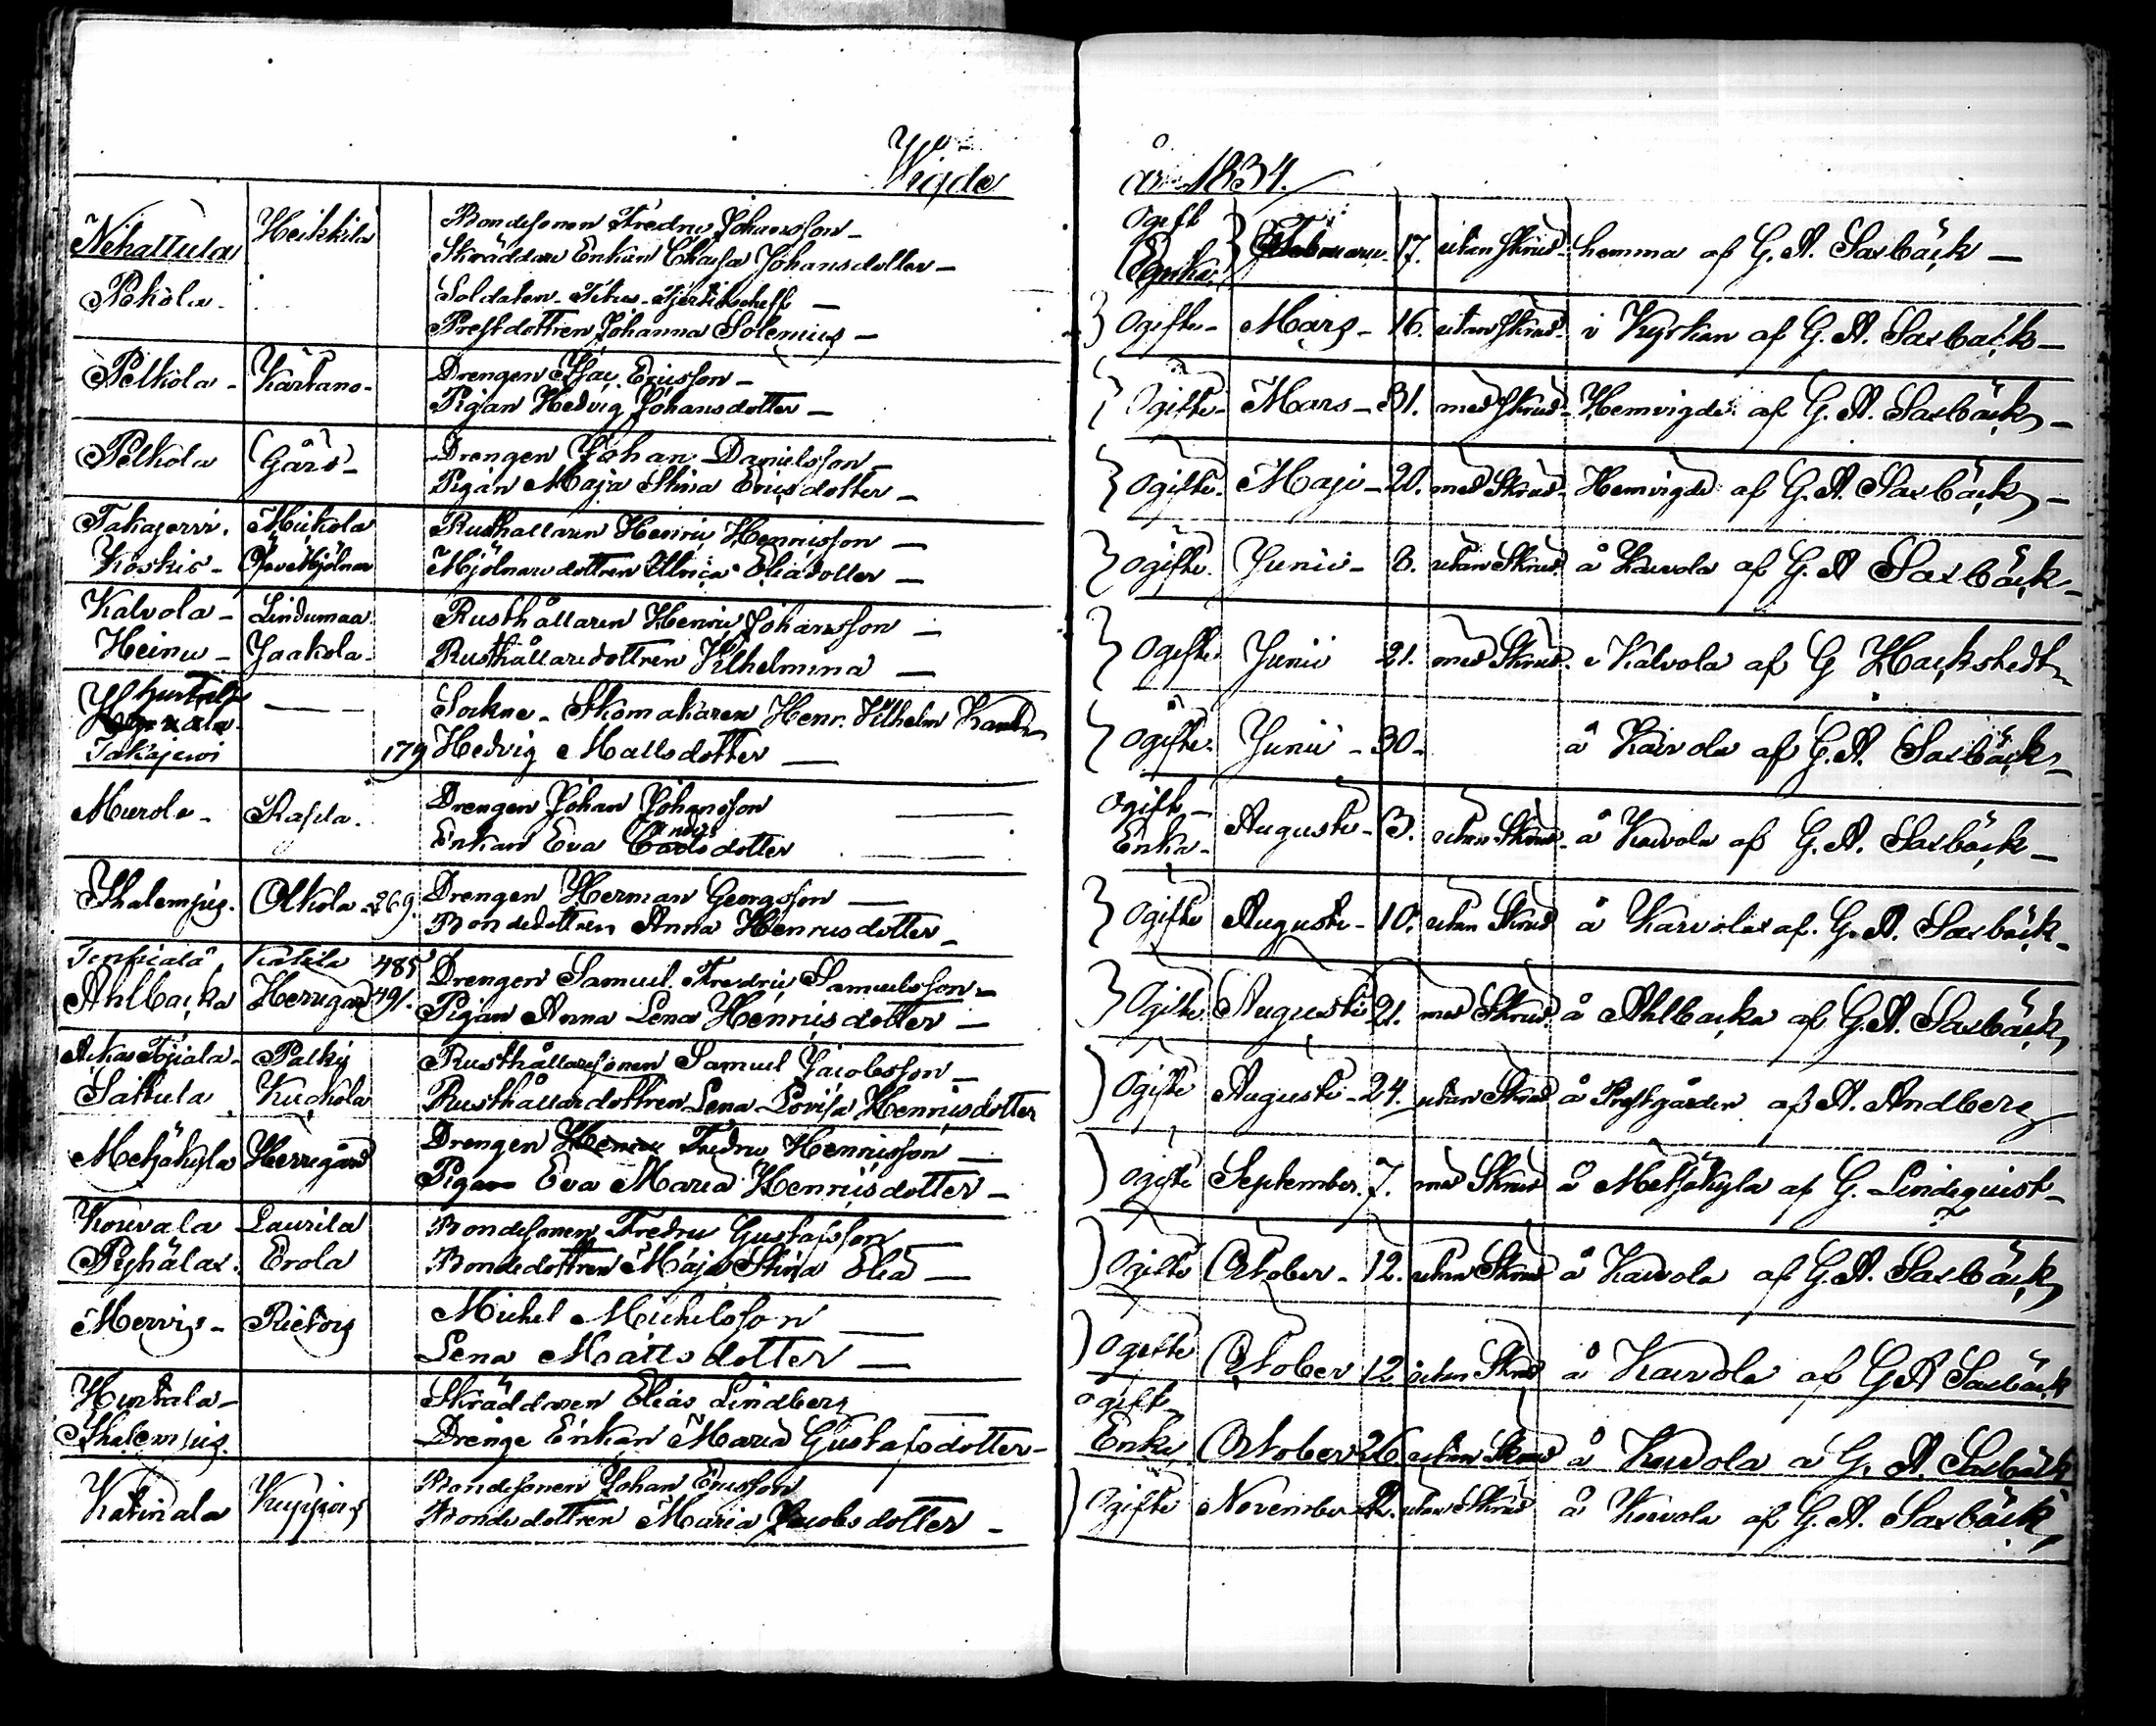 Wigde år 1834.
Nihattula Heikkilä Bondesonen Fredric Johansson Ogift Februari 17. utan skrud hemma af G. A. Saxbäck
Skräddare Enkan Johansdotter Enka
Pekola Soldaten Titus Ogifte Mars 16. utan skrud i Kyrkan af G. A. Saxbäck
Prestdottren Johanna Solenius
Pelkola Kartano Drengen Isac Ericsson Ogifte Mars 31. med skrud Hemvigde af G. A. Saxbäck
Pigan Hedvig Johansdotter
Pelkola Gårs Drengen Johan Danielsson Ogifte Maji 20. med Skrud Hemvigde af G. A. Saxbäck
Pigan Maja Stina Ericsdotter
Takajervi Mickola Rusthållaren Henric Henricsson Ogifte Junii 8. utan Skrud å Karvola af G. A Saxbäck
Koskis Öfre Mjölnar Mjölnaredottren Ulrica Eliædotter
Kalvola Lindumaa Rusthållaren Henric Johansson Ogifte Junii 21. med Skrud i Kalvola af G Hackstedt
Heinu Jaakola Rusthållaredottren Vilhelmina
Hurttala Sockne Skomakaren Henr. Vilhelm Ogifte Junii 30 å Karvola af G. A. Saxbäck
Takajervi 179 Hedvig Mattsdotter
Merola Rapila Drengen Johan Johansson Ogift Augusti 3. utan Skrud å Karvola af G. A. Saxbäck
Enkan Eva dotter Enka
Ihalempis Olkola 269. Drengen Herman Georgsson Ogifte Augusti 10. utan Skrud å Karvola af G. A. Saxbäck
Bondedottren Anna Henricsdotter
Tenhiala Katila 485 Drengen Samuel Fredric Samuelsson Ogifte Augusti 21. med Skrud å Ahlbacka af G. A. Saxbäck
Ahlbacka Herrgård 491. Pigan Anna Lena Henricsdotter
Palkis Rusthållaresonen Samuel Jacobsson Ogifte Augusti 24. utan Skrud å Prestgården af A. Andberg
Sattula Kuckola Rusthållardottren Lena Lovisa Henricsdotter
Metsäkyla Herregård Drengen Fredric Henricsson Ogifte September 7. med Skrud å Metsäkyla af G. Lindequist
Pigan Eva Maria Henricsdotter
Kouvala Laurila Bondesonen Fredric Gustafsson Ogifte October 12. utan Skrud å Karvola af G. A. Saxbäck
Pyhälax Erola Bondedottren Maja Stina Eliæ
Mervis Rietois Michel Michelsson Ogifte October 12 utan Skrud å Karvola af G A Saxbäck
Lena Mattsdotter
Hurttala Skräddaren Elias Lindberg Ogift
Ihalempis Drenge Enkan Maria Gustafsdotter Enka October 26 utan Skrud å Karvola a G. A. Saxbäck
Katinala Kuppois Bondesonen Johan Ericsson Ogifte November utan Skrud å Karvola af G. A. Saxbäck
Bondedottren Maria Jacobsdotter